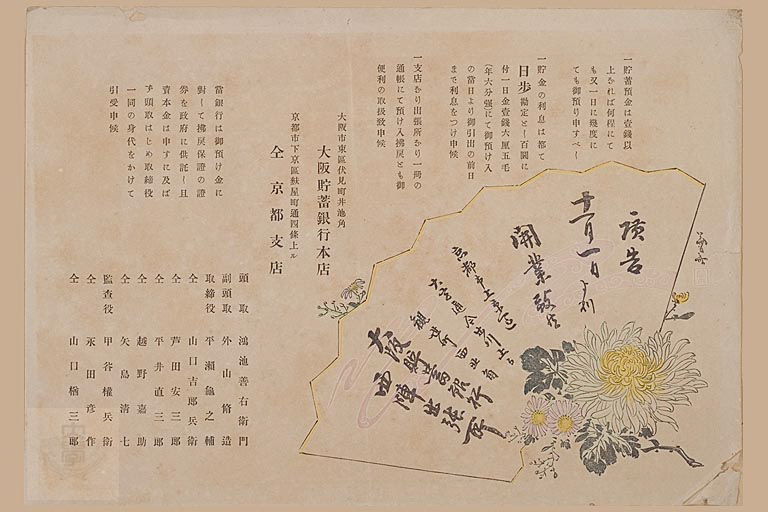 廣告
十一月一日より
開業致候
京都市上京區
大宮通今出川上る
觀世町西北角
大阪貯蓄銀行
西陣出張店
一貯蓄預金は壹錢以
上なれば何程にて
も又一日に幾度に
ても御預り申すべし
一貯金の利息は都て
日歩勘定とし百圓に
付一日金壹錢六厘五毛
(年六分强)にて御預け入
の當日より御引出の前日
まで利息をつけ申候
一支店なり出張所なり一冊の
通帳にて預け入拂戻とも御
便利の取扱致申候
大阪市東區伏見町井池角
大阪貯蓄銀行本店
京都市下京區麩屋町通四條上ル
仝京都支店
當銀行は御預け金に
對して拂戻保證の證
券を政府に供託し且
資本金は申すに及ば
ず頭取はじめ取締役
一同の身代をかけて
引受申候
頭取 鴻池善右衛門
副頭取 外山脩造
取締役 平瀬龜之輔
仝 山口吉郎兵衛
仝 芦田安三郎
仝 平井直三郎
仝 越野嘉助
仝 矢島清七
監査役 甲谷權兵衛
仝 永田彦作
仝 山口楢三郎